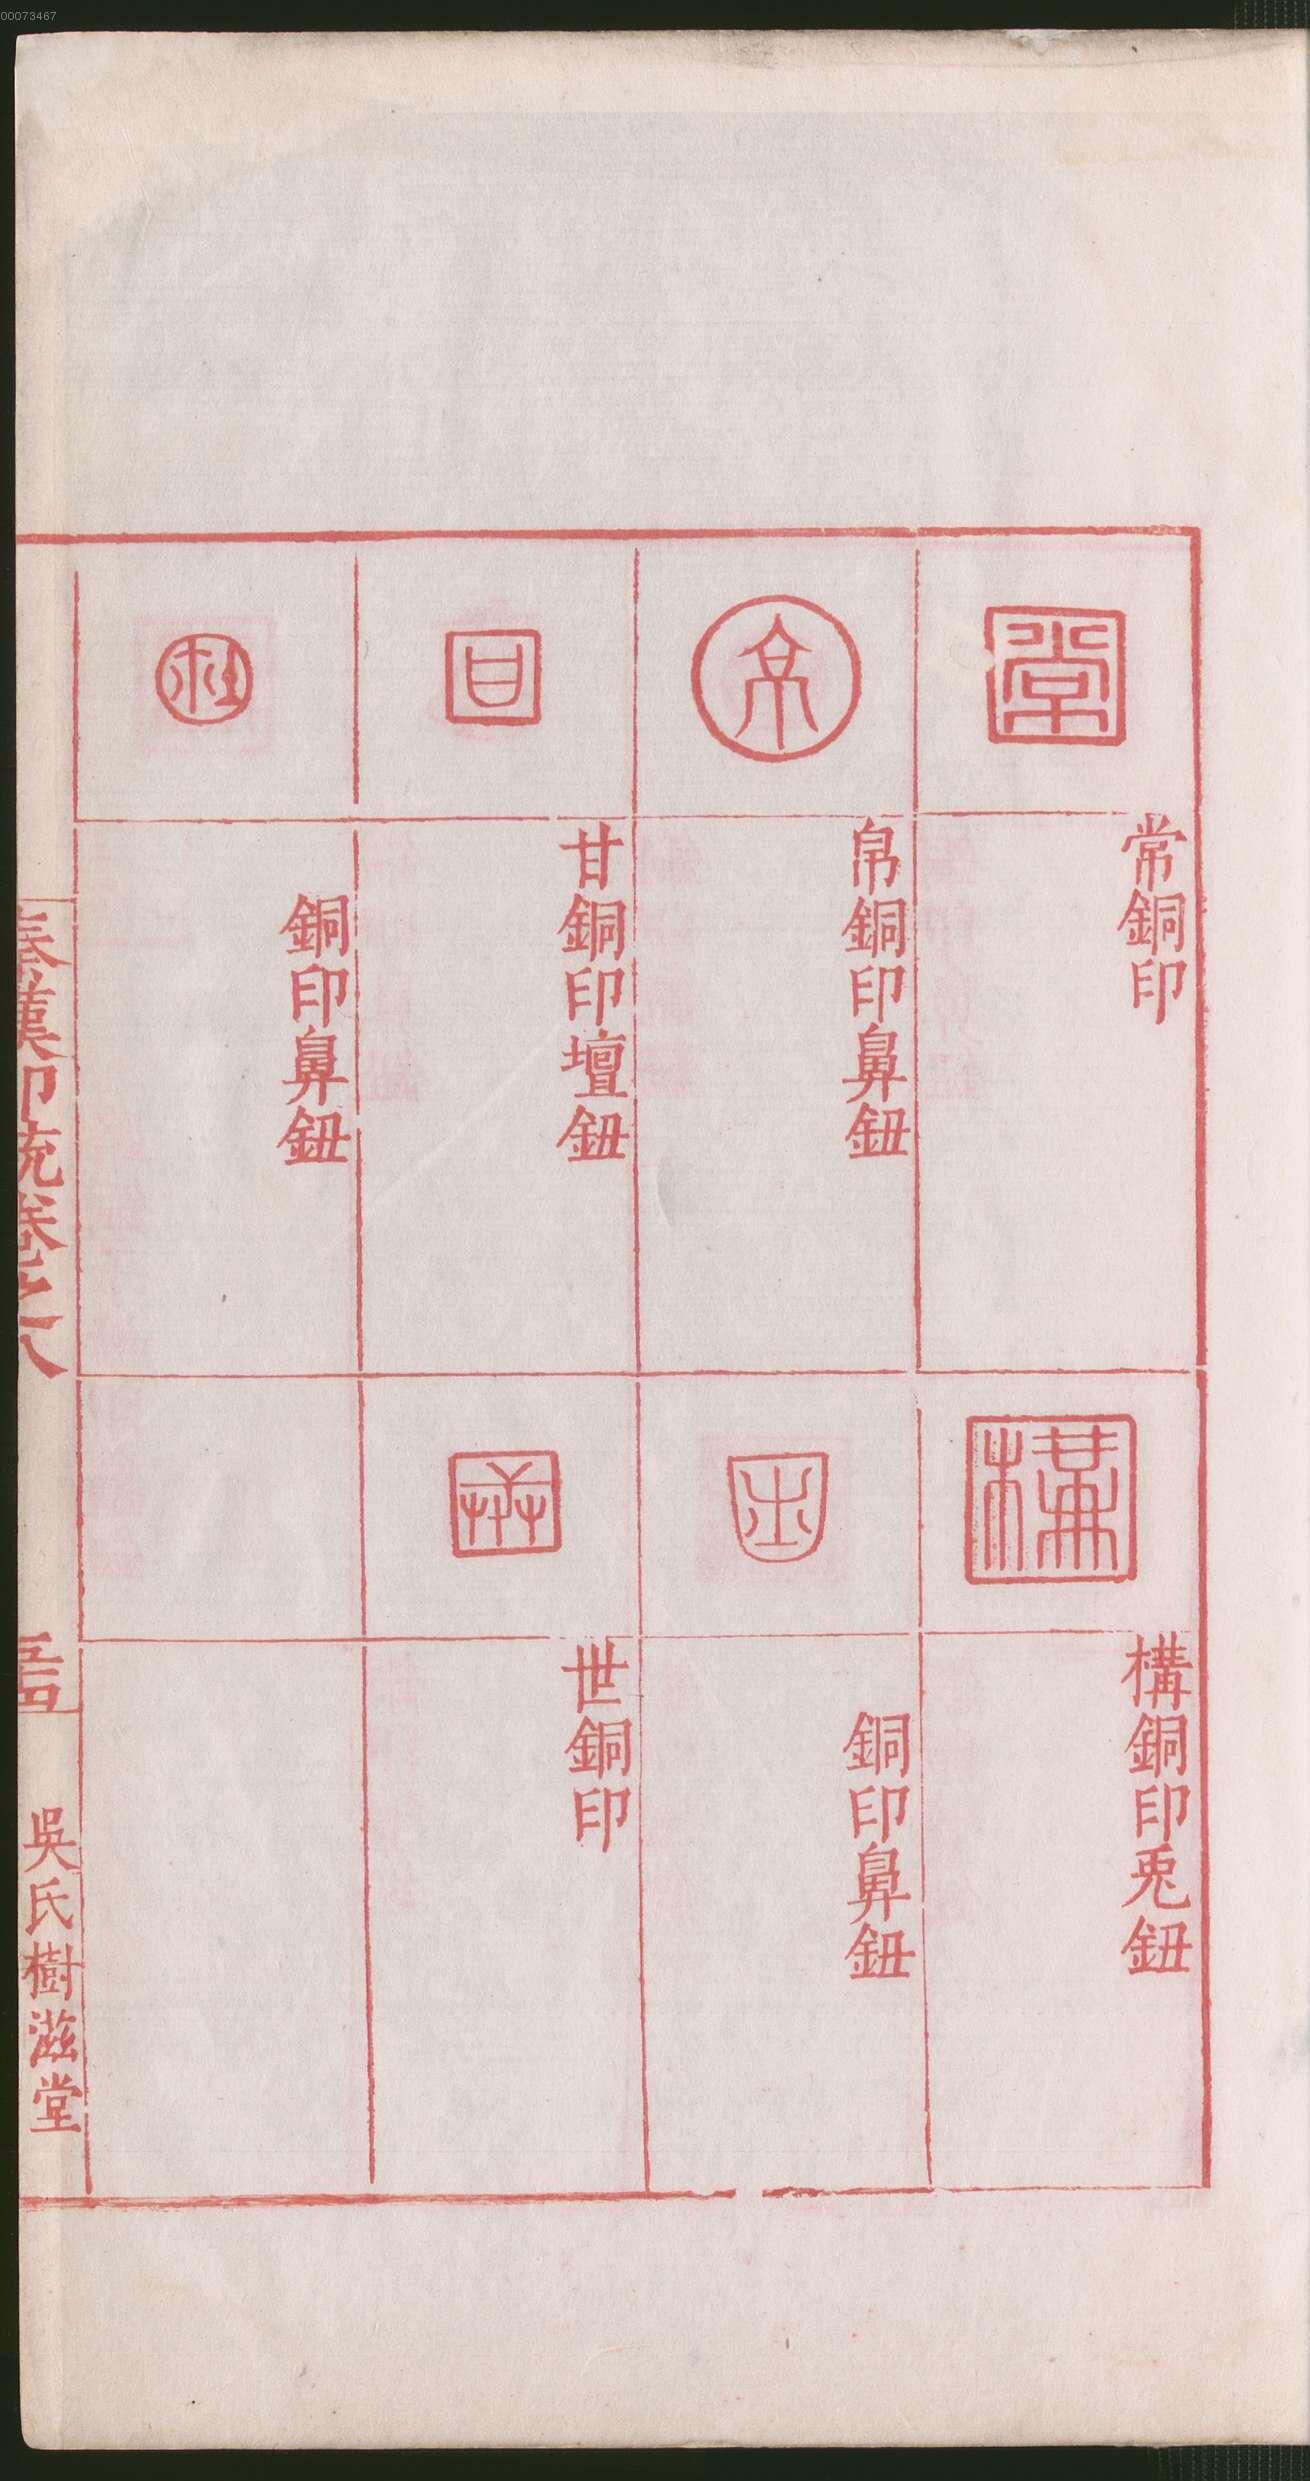 00073467
常
常銅印
帛
帛銅印鼻鈕
甘
甘銅印壇鈕
銅印鼻鈕
構
構銅印兎鈕
銅印鼻鈕
世銅印
秦漢印統卷之八
五四
吳氏樹滋堂